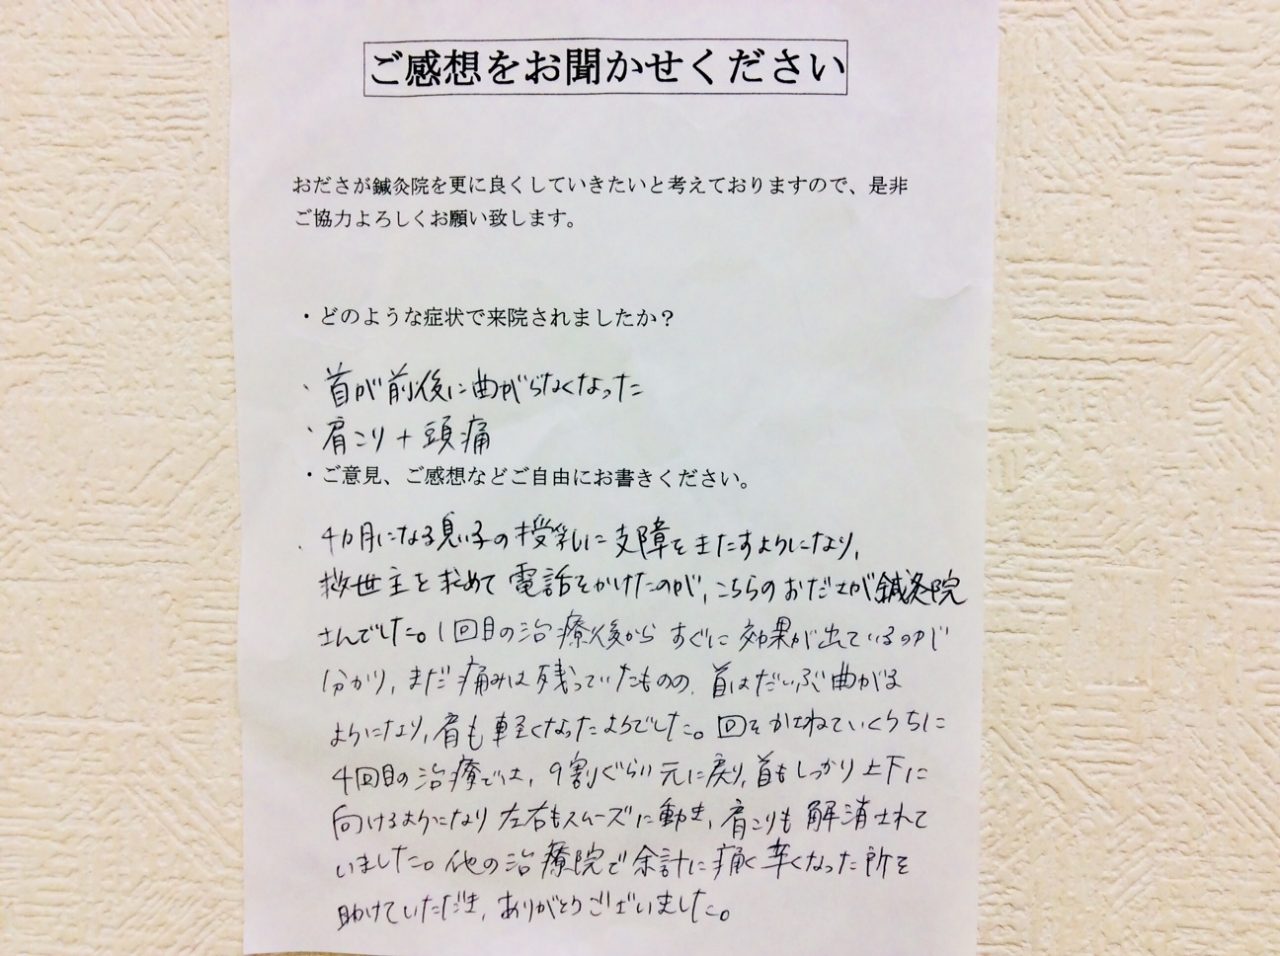 ご感想をお聞かせください
おださが鍼灸院を更に良くしていきたいと考えておりますので、是非
ご協力よろしくお願い致します。
・どのような症状で来院されましたか？
・首が前後に曲がらなくなった
・肩こり＋頭痛
・ご意見、ご感想などご自由にお書きください。
・4ヵ月になる息子の授乳に支障をきたすようになり、
救世主を求めて電話をかけたのが、こちらのおださが鍼灸院
さんでした。1回目の治療後からすぐに効果が出ているのが
分かり、まだ痛みは残っていたものの、首はだいぶ曲がる
ようになり、肩も軽くなったようでした。回をかさねていくうちに
4回目の治療では、9割ぐらい元に戻り、首もしっかり上下に
向けるようになり左右もスムーズに動き、肩こりも解消されて
いました。他の治療院で余計に痛く辛くなった所を
助けていただき、ありがとうございました。